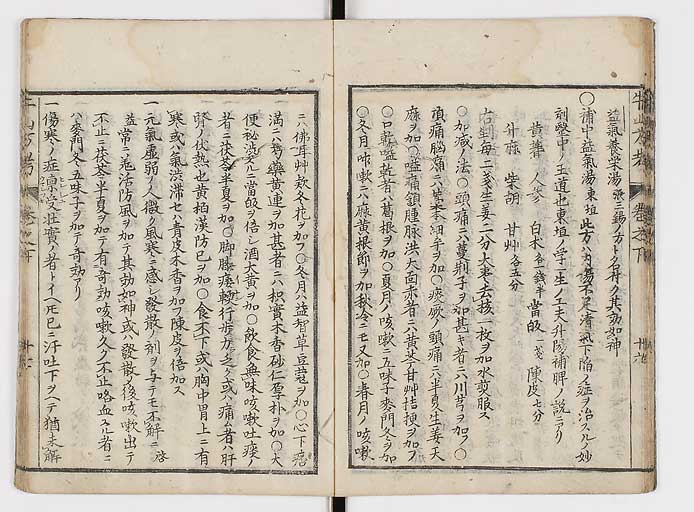 益氣養榮湯
○補中益氣湯東垣此方ハ内傷不足清氣下陥ノ症ヲ治スルノ妙
剤醫中ノ王道也東垣ノ学一生ノ工夫升陽補脾ノ説コリ
黄芪 人参 白朮各一錢半 當皈一戔 陳皮七分
升麻 柴胡 甘艸各五分
右剉毎二戔生姜二分大棗去核一枚ヲ加水煎服ス
○加减ノ法○頭痛ニハ蔓荊子ヲ加甚キ者ニハ川芎ヲ加フ○
頂痛腦痛ニハ藁本細辛ヲ加○痰厥ノ頭痛ニハ半夏生姜天
麻ヲ加○嗌痛頷腫脉洪大面赤者ニハ黄芩甘艸桔梗ヲ加フ
○口乾嗌乾者ハ葛根ヲ加○夏月ノ咳嗽ニハ五味子麥門冬ヲ加
○冬月ノ咳嗽ニハ麻黄根節ヲ加秋冷ニモ又加○春月ノ咳嗽
ニハ佛耳艸欵冬花ヲ加フ○冬月ハ益智草豆蔲ヲ加○心下痞
満ニハ芍藥黄連ヲ加甚者ニハ枳實木香砂仁厚朴ヲ加○大
便秘澁スルニハ當皈ヲ倍シ酒大黄ヲ加○飲食無味咳嗽吐痰ノ
者ニハ茯苓半夏ヲ加○脚膝痿軟行歩力乏ク或ハ痛ム者ハ肝
腎ノ伏熱也黄栢漢防已ヲ加○食不下或ハ胸中胃上ニ有
寒或ハ氣渋滞セハ青皮木香ヲ加フ陳皮ヲ倍加ス
一元氣虚弱ノ人微ク風寒ニ感シ發散ノ剤ヲ与テモ不解ニハ
益常ニ羌活防風ヲ加テ其効如神或ハ發散ノ後咳嗽出テ
不止ニハ茯苓半夏ヲ加テ有奇効咳嗽久ク不止咯血スル者ニ
ハ麥門冬五味子ヲ加テ奇効アリ
一傷寒ノ症壮實ノ者トイヘ𪜈已ニ汗吐下ヲヘテ猶未解